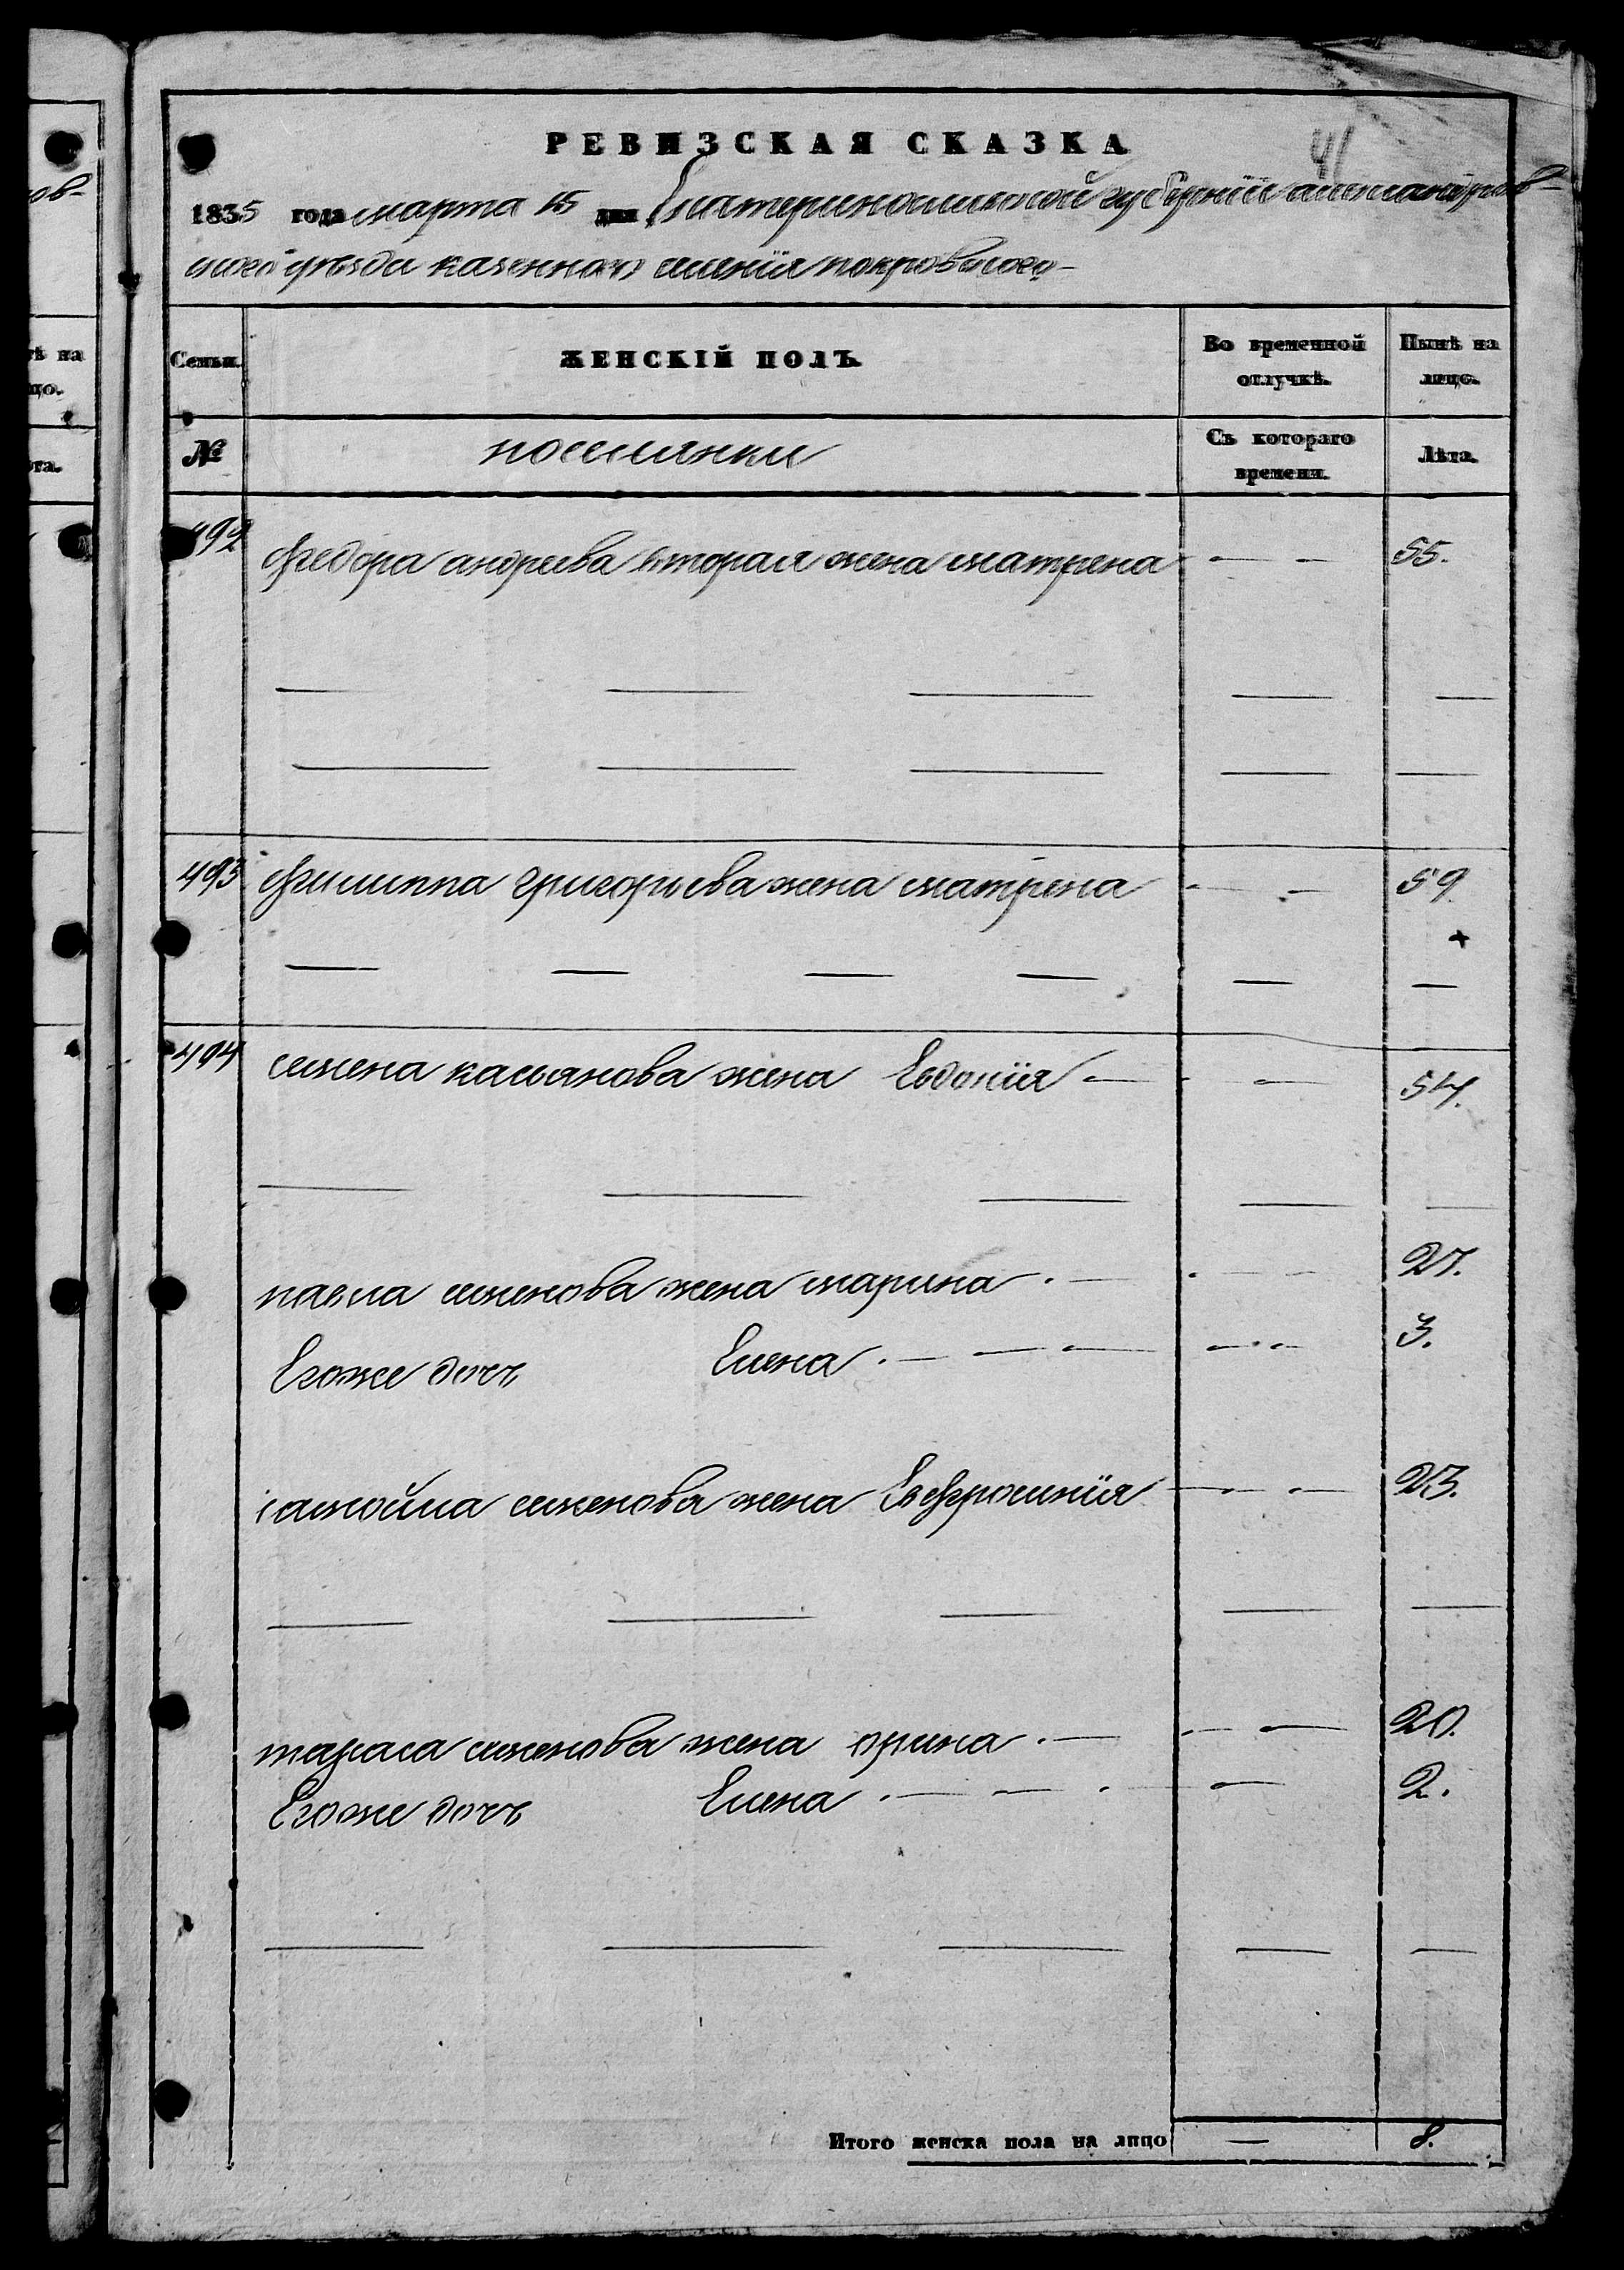 41
РЕВИЗСКАЯ СКАЗКА
1835 года марта 15 дня Екатеринославской губернїи александров-
ского уѣзда казенного селенїя покровского-
Семьи.
ЖЕНСКІЙ ПОЛЪ
Во временной отлучкѣ.
Нынѣ на лицо.
№
поселянки
Съ котораго времени.
Лѣта.
492 федора андреева вторая жена матрена — — 55.
493 филиппа григорьева жена матрена — — 59.
494 семена касьянова жена Евдокїя — — 54.
павла семенова жена марина — — 27.
Егоже дочь Елена — — — 3.
самойла семенова жена Евфросинїя — — 23.
тараса семенова жена орина — — 20.
Егоже дочь Елена — — 2.
Итого женска пола на лицо — 8.
ов-
ѣ на
цо.
та.